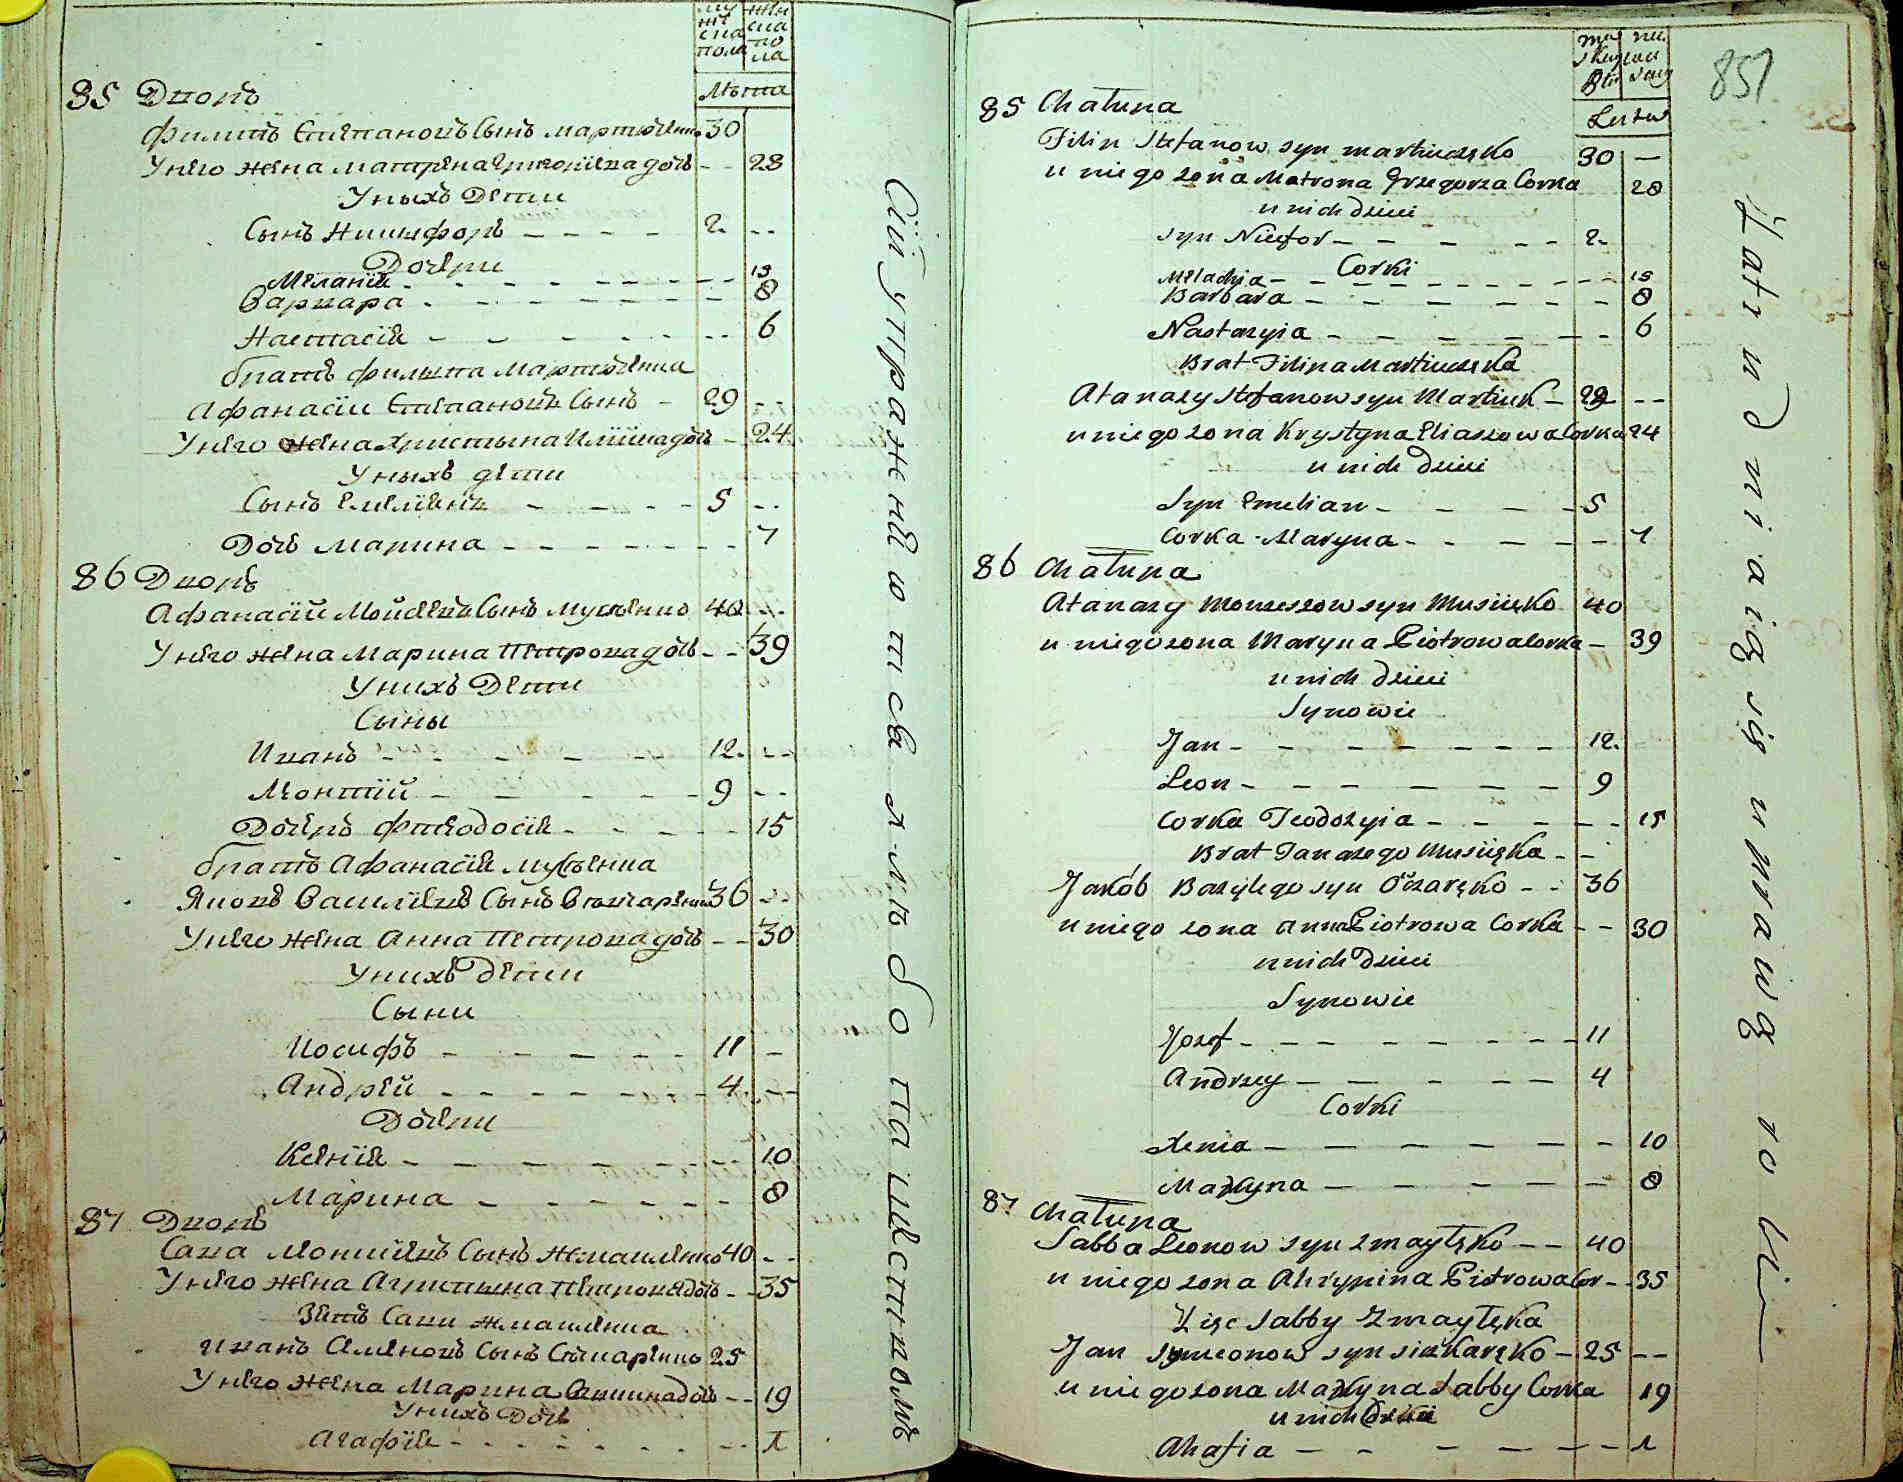 мужеска пола
женска пола
Лѣта
85 Дворъ
Филипъ Степановъ Сынъ Мартюченко 30
Унего жена Матрена Григориева дочь - - 28
Уныхъ Дети
Сынъ Никифоръ - - - - 2. - -
Дочери
Меланiя - - - - - - - 13
Варвара - - - - - - - 8
Настасiя - - - - - - 6
братъ Филиппа Мартюченка
Афанасiи Степановъ Сынъ - 29 - -
Унего жена Христына Илiина дочь - 24
Уныхъ дети
Сынъ Емелиянъ - - - - 5 - -
Дочь Марина - - - - - - 7
86 Дворъ
Афанасiй Мойсеевъ Сынъ Мусiенко 40 - -
Унего жена Марина Петрова дочь - - 39
Унихъ Дети
Сыны
Иванъ - - - - - 12. - -
Леонтiй - - - - - 9 - -
Дочеръ Фтеодосiя - - - - - 15
братъ Афанасiя Мусiенка
Яковъ Василiевъ Сынъ 36 - -
Унего жена Анна Петрова дочь - - 30
Унихъ Дети
Сыни
Иосифъ - - - - - 11 -
Андрей - - - - - - 4 - -
Дочери
Ксенiя - - - - - - - 10
Марина - - - - - - 8
87 Дворъ
Сава Леонтiевъ Сынъ Жмайленко 40 - -
Унего жена Агрипына Петрова дочь - - 35
Зять Сави Жмайленка
Иванъ Семеновъ Сынъ 25
Унего жена Марина Савина дочь - - 19
Унихъ Дочь
Агафiя - - - - - - - 1
851
Letwa
85 Chałupa
Filip Stefanow syn Martiuczęko 30 —
u niego zona Matrona Grzegorza Corka 28
u nich dzieci
syn Nicefor - - - - - 2.
Corki
Meladyia - - - - - - - - 13
Barbara - - - - - - 8
Nastazyia - - - - - - 6
Brat Filipa Martiuczęka
Atanazy Stefanow syn Martiuk - 29 - -
u niego zona Krystyna Eliaszowa Corka 24
u nich dzieci
Syn Emelian - - - - 5
Corka Maryna - - - - - 7
86 Chałupa
Atanazy Moyzeszow syn Musiięko 40
u niego zona Maryna Piotrowa Corka - 39
u nich dzieci
Synowie
Jan - - - - - - - 12.
Leon - - - - - - 9
Corka Teodozyia - - - - - 15
Brat Tanazego Musiięka - -
Jakób Bazylego syn Oczaręko - - 36
u niego zona Anna Piotrowa Corka - - 30
u nich Dzieci
Synowie
Jozef - - - - - - - - 11
Andrzey - - - - - 4
Corki
Xenia - - - - - - - 10
Maryna - - - - - - 8
87 Chałupa
Sabba Leonow syn Zmaytęko - - 40
u niego zona Ahrypina Piotrowa Cor - - 35
Zięc Sabby Zmaytęka
Jan Symeonow syn - 25 - -
u niego zona Maryna Sabby Corka 19
u nich
Ahafia - - - - - - 1